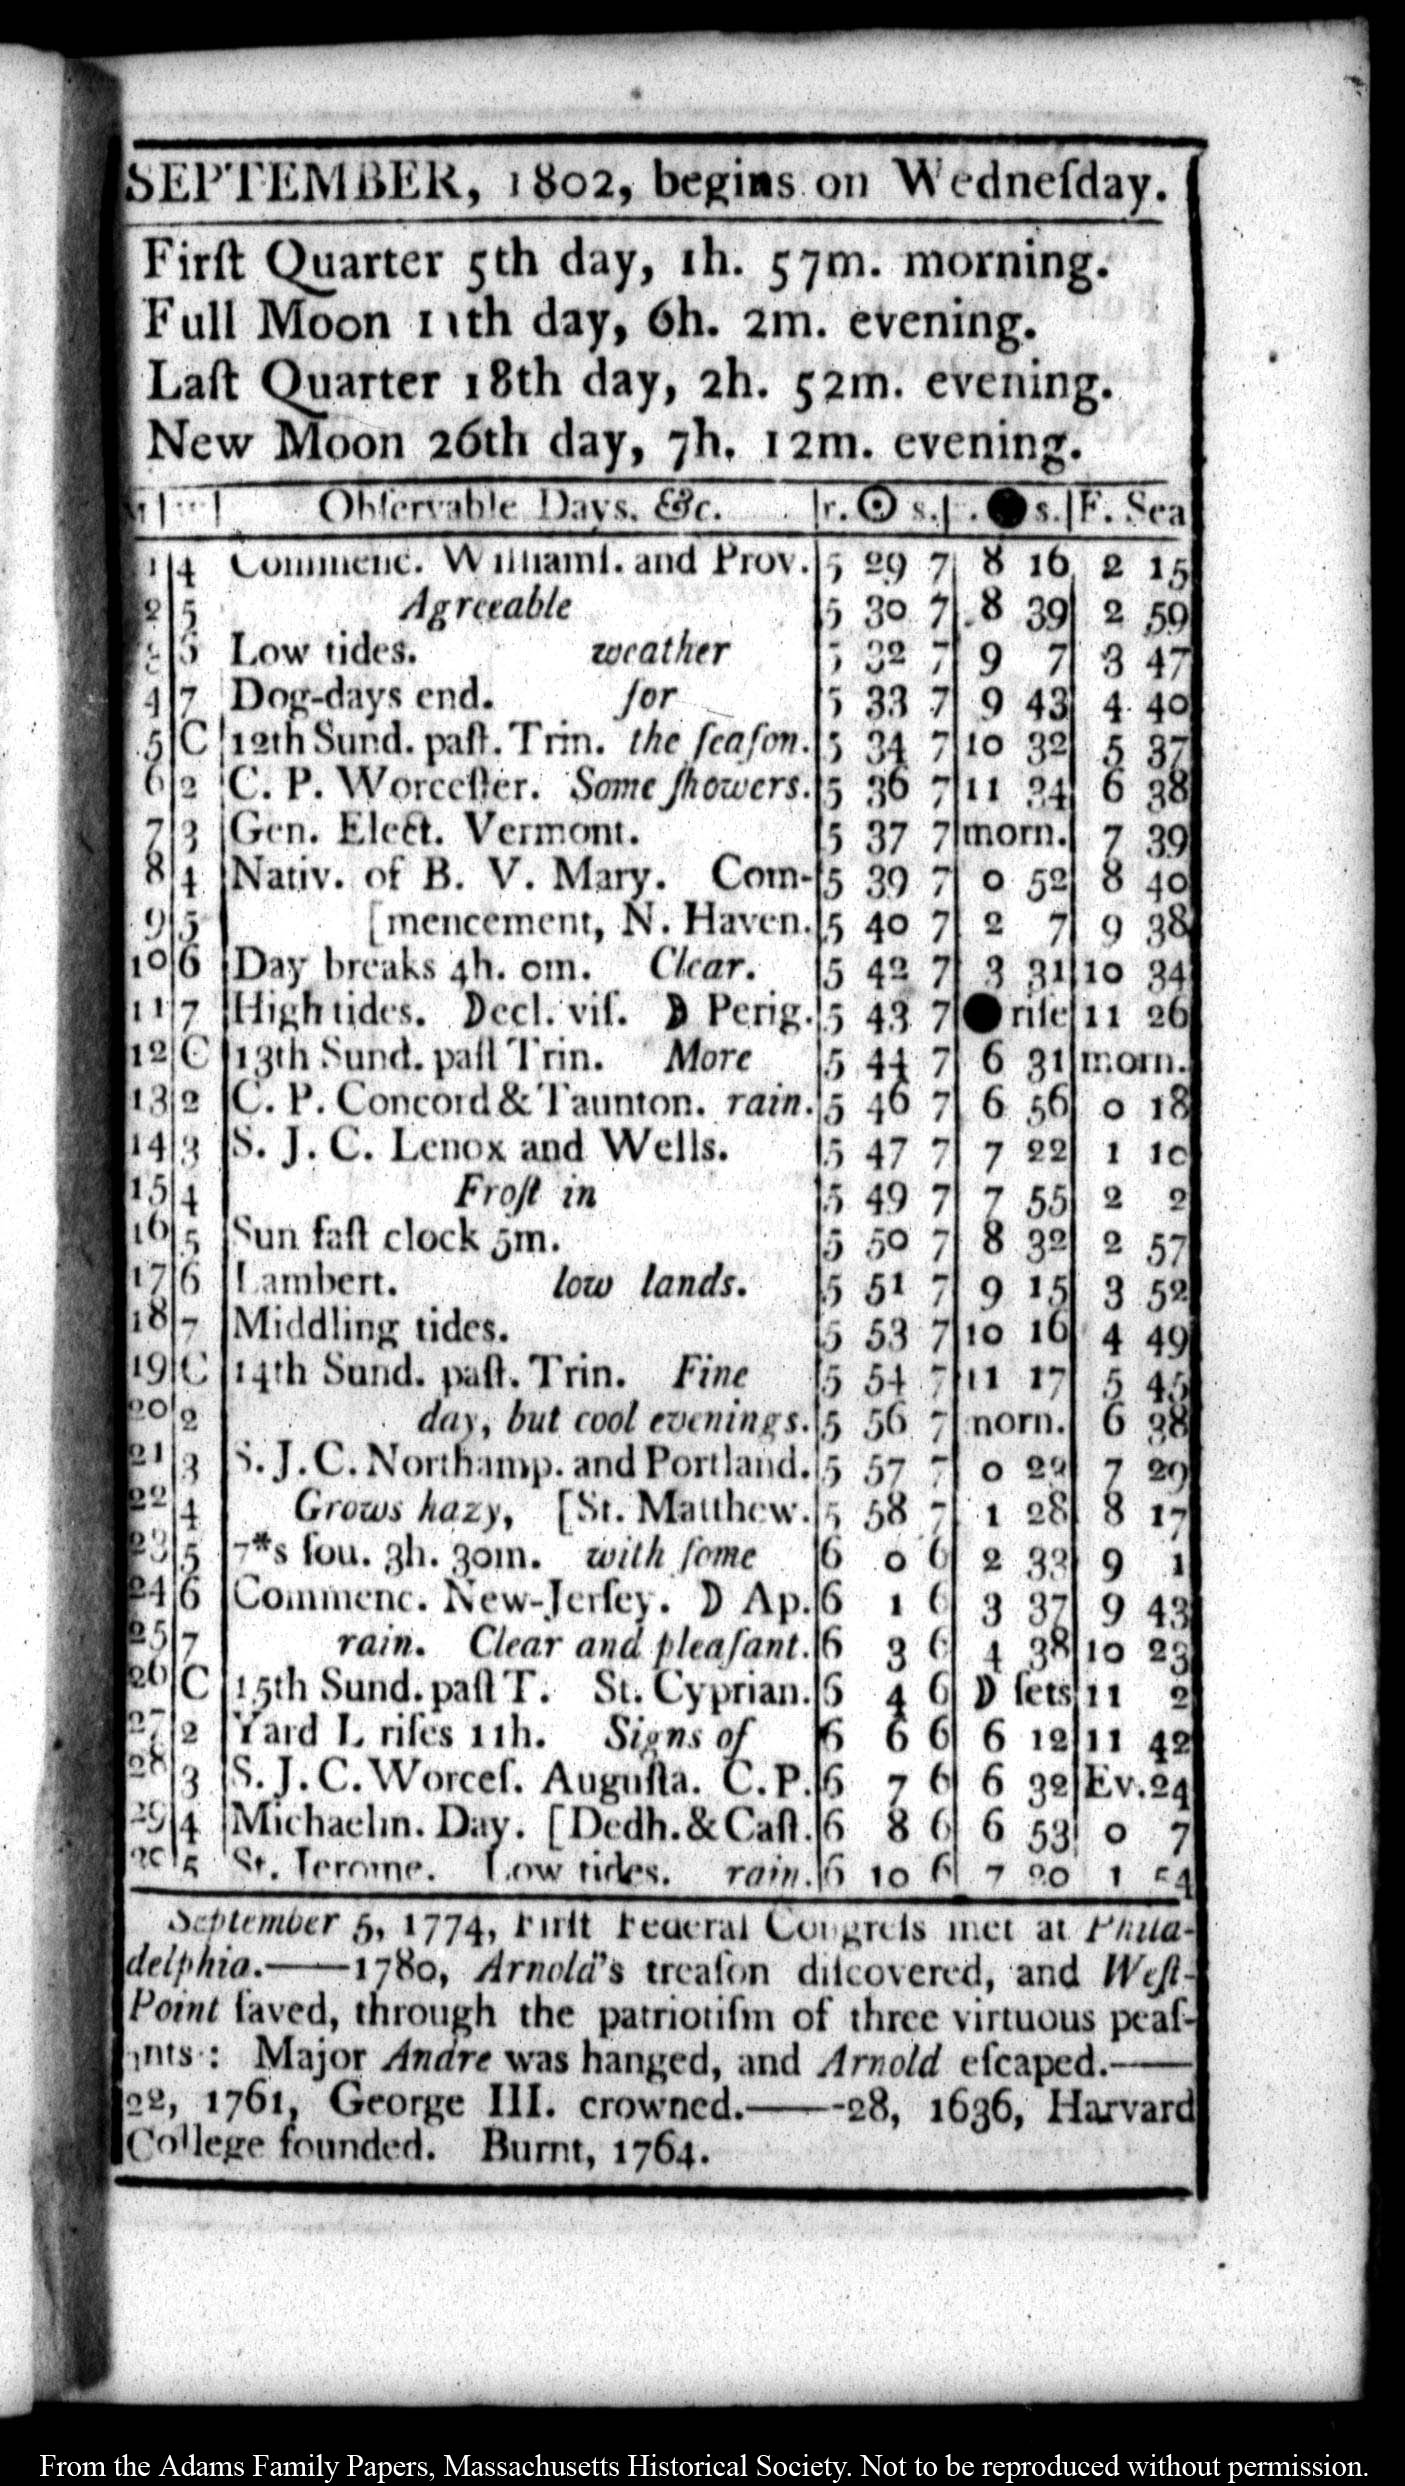 SEPTEMBER, 1802, begins on Wedneſday.
Firſt Quarter 5th day, 1h. 57m. morning.
Full Moon 11th day, 6h. 2m. evening.
Laſt Quarter 18th day, 2h. 52m. evening.
New Moon 26th day, 7h. 12m. evening.
Obſervable Days. &c. r. ☉ s. ● s. F. Sea
1 4 Commenc. Williamſ. and Prov. 5 29 7 8 16 2 15
2 5 Agreeable 5 30 7 8 39 2 59
6 Low tides. weather 5 32 7 9 7 3 47
4 7 Dog-days end. for 5 33 7 9 43 4 40
5 C 12th Sund. paſt. Trin. the ſeaſon. 5 34 7 10 32 5 37
6 2 C. P. Worceſter. Some ſhowers. 5 36 7 11 34 6 38
7 3 Gen. Elect. Vermont. 5 37 7 morn. 7 39
8 4 Nativ. of B. V. Mary. Com- 5 39 7 0 52 8 40
9 5 [mencement, N. Haven. 5 40 7 2 7 9 38
10 6 Day breaks 4h. 0m. Clear. 5 42 7 3 31 10 34
11 7 High tides. Decl. viſ. D Perig. 5 43 7 ● riſe 11 26
12 C 13th Sund. paſt Trin. More 5 44 7 6 31 morn.
13 2 C. P. Concord & Taunton. rain. 5 46 7 6 56 0 18
14 3 S. J. C. Lenox and Wells. 5 47 7 7 22 1 10
15 4 Froſt in 5 49 7 7 55 2 2
16 5 Sun faſt clock 5m. 5 50 7 8 32 2 57
17 6 Lambert. low lands. 5 51 7 9 15 3 52
18 7 Middling tides. 5 53 7 10 16 4 49
19 C 14th Sund. paſt. Trin. Fine 5 54 7 11 17 5 45
20 2 day, but cool evenings. 5 56 7 morn. 6 38
21 3 S. J. C. Northamp. and Portland. 5 57 7 0 22 7 29
22 4 Grows hazy, [St. Matthew. 5 58 7 1 28 8 17
23 5 7*s ſou. 3h. 30m. with ſome 6 0 6 2 33 9 1
24 6 Commenc. New-Jerſey. D Ap. 6 1 6 3 37 9 43
25 7 rain. Clear and pleaſant. 6 3 6 4 38 10 23
26 C 15th Sund. paſt T. St. Cyprian. 6 4 6 D ſets 11 2
27 2 Yard L riſes 11h. Signs of 6 6 6 6 12 11 42
28 3 S. J. C. Worceſ. Auguſta. C. P. 6 7 6 6 32 Ev.24
29 4 Michaelm. Day. [Dedh. & Caſt. 6 8 6 6 53 0 7
30 5 St. Jerome. Low tides. rain. 6 10 6 7 20 1 54
September 5, 1774, Firſt Federal Congreſs met at Phila-
delphia.——1780, Arnold's treaſon diſcovered, and Weſt-
Point ſaved, through the patriotiſm of three virtuous peaſ-
ants: Major Andre was hanged, and Arnold eſcaped.——
22, 1761, George III. crowned.——-28, 1636, Harvard
College founded. Burnt, 1764.
From the Adams Family Papers, Massachusetts Historical Society. Not to be reproduced without permission.